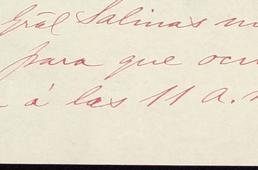 Grãl Salinas m
para que ocu
á las 11 a.